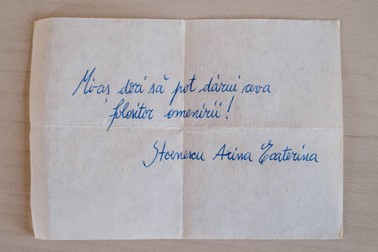 Mi-aș dori să pot dărui ceva
folositor omenirii!
Stoenescu Arina Ecaterina